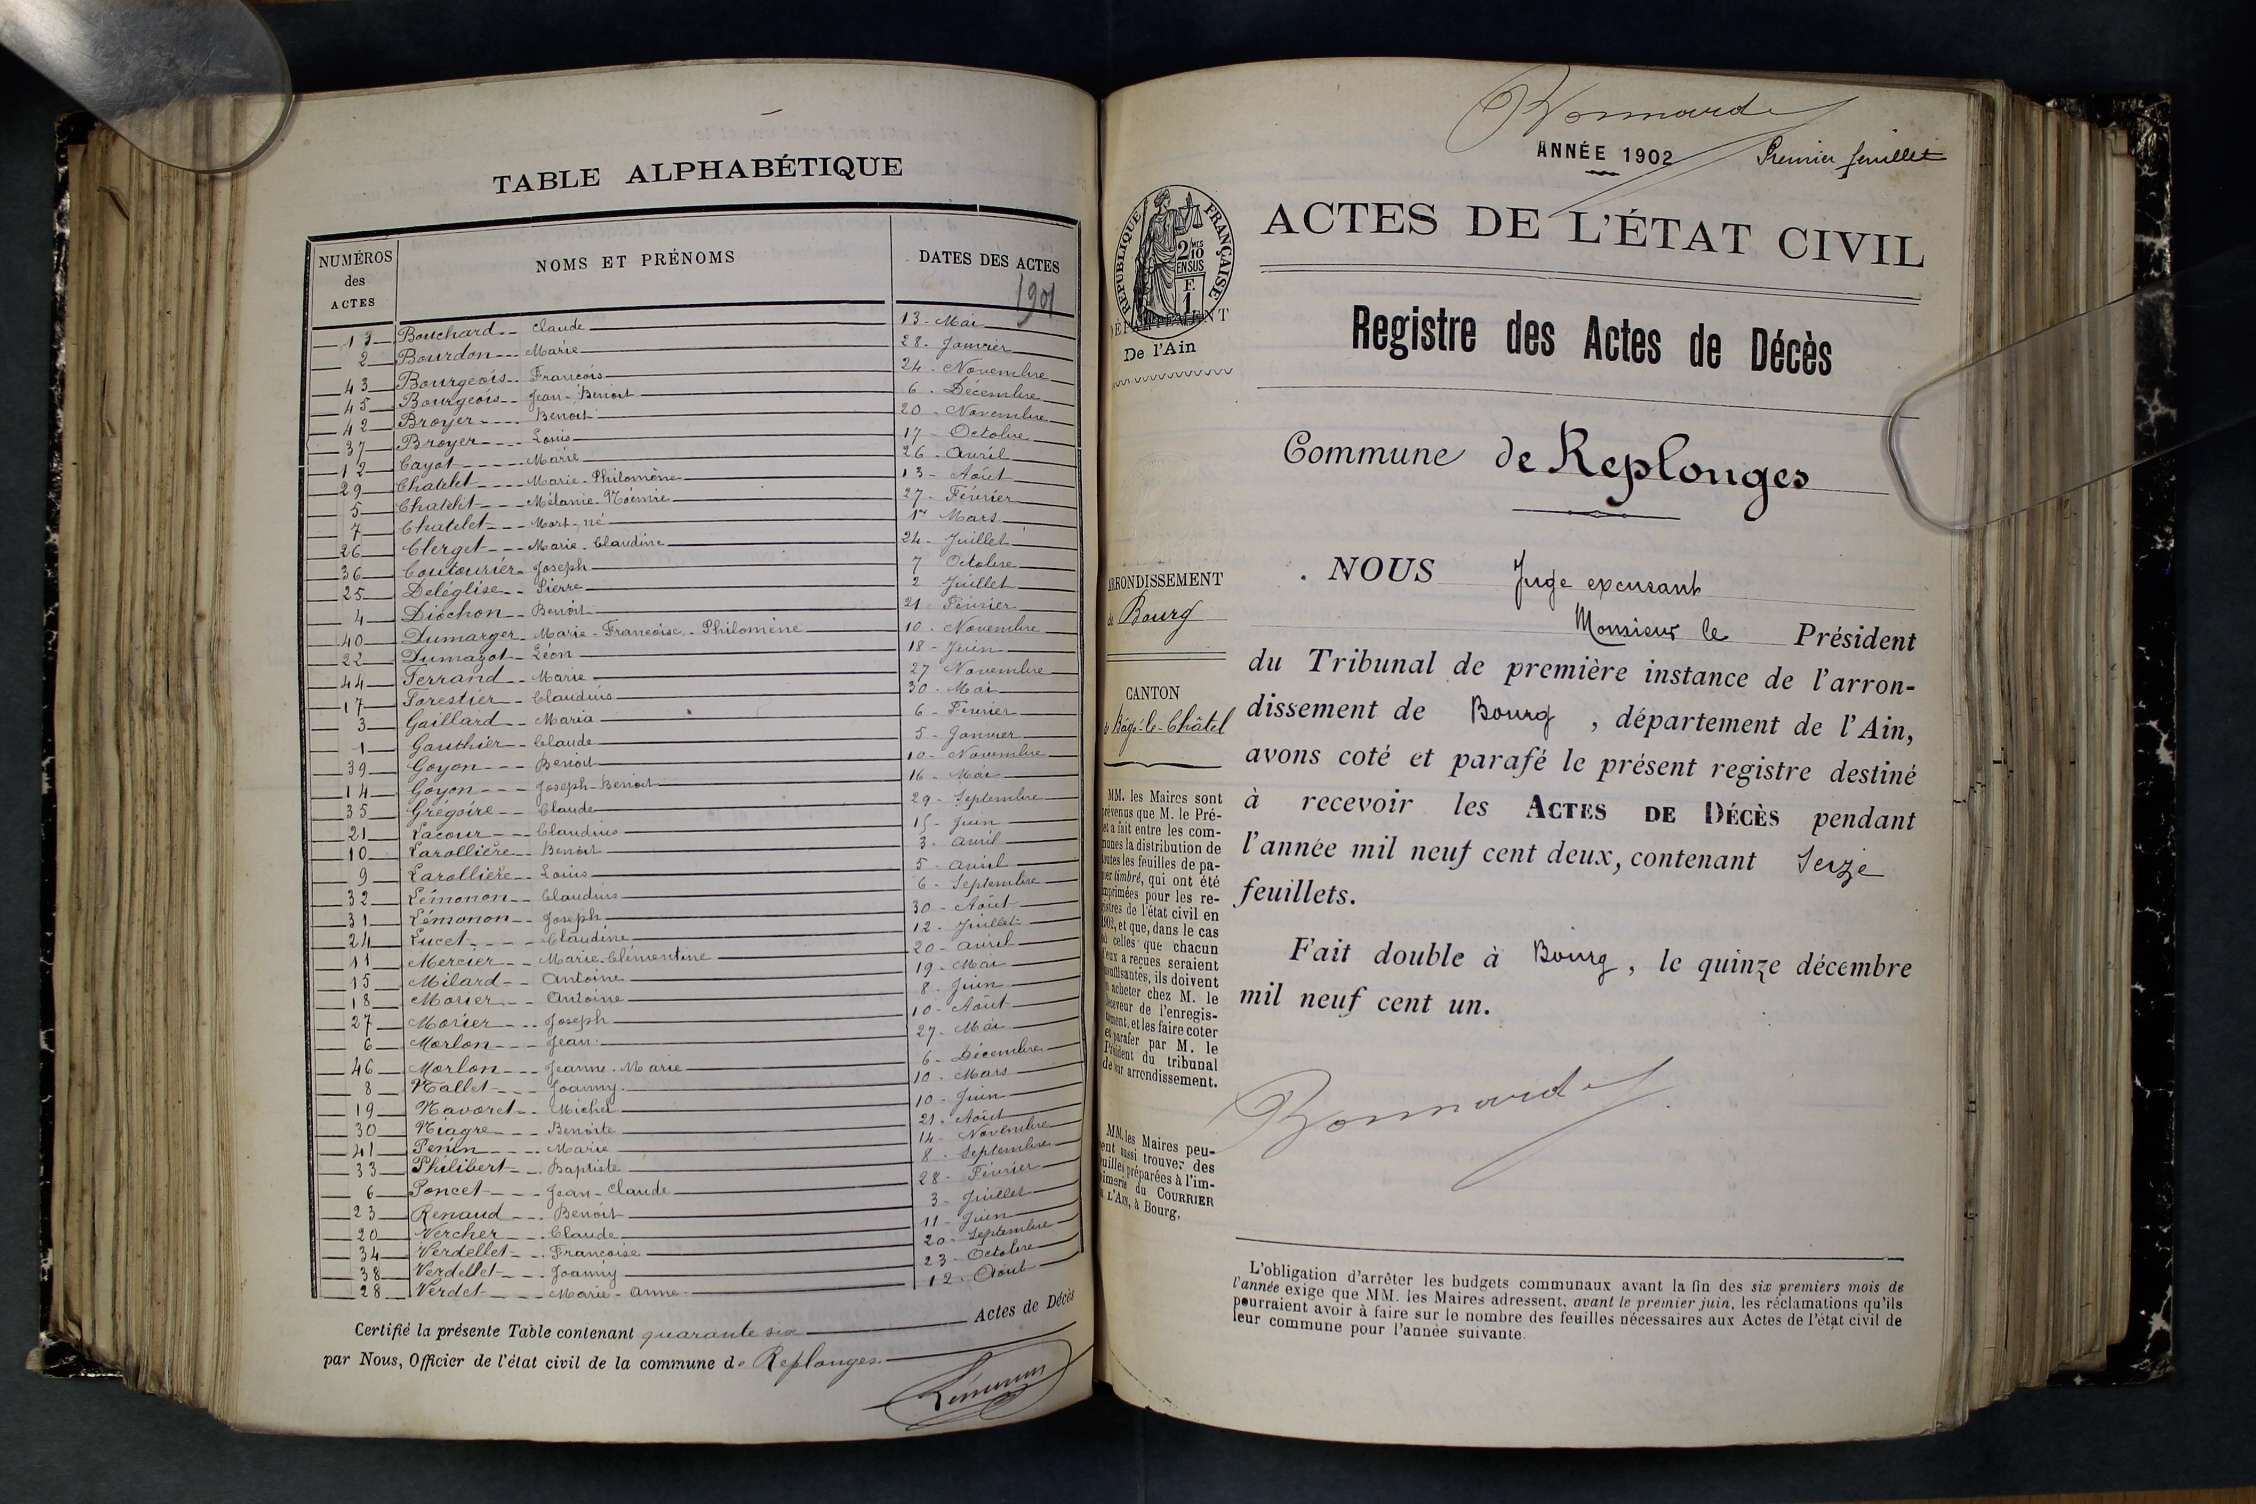 TABLE ALPHABÉTIQUE
NUMÉROS des ACTES
NOMS ET PRÉNOMS
DATES DES ACTES
1901
13 Bouchard Claude 13 Mai
2 Bourdon Marie 28 Janvier
43 Bourgeois François 24 Novembre
45 Bourgeois Jean-Benoit 6 Décembre
42 Broyer Benoit 20 Novembre
37 Broyer Louis 17 Octobre
12 Cayot Marie 26 Avril
29 Chatelet Marie-Philomène 13 Août
5 Chatelet Mélanie-Noémie 27 Février
7 Chatelet Mort-né 1er Mars
26 Clerget Marie-Claudine 24 Juillet
36 Couturier Joseph 7 Octobre
25 Deléglise Pierre 2 Juillet
4 Diochon Benoit 21 Février
40 Dumarger Marie-Françoise-Philomène 10 Novembre
22 Dumazot Léon 18 Juin
44 Ferrand Marie 27 Novembre
17 Forestier Claudius 30 Mai
3 Gaillard Maria 6 Février
1 Gauthier Claude 5 Janvier
39 Goyon Benoit 10 Novembre
14 Goyon Joseph-Benoit 16 Mai
35 Grégoire Claude 29 Septembre
21 Lacour Claudius 15 Juin
10 Larollière Benoit 3 Avril
9 Larollière Louis 5 Avril
32 Lémonon Claudius 6 Septembre
31 Lémonon Joseph 30 Août
24 Lucet Claudine 12 Juillet
11 Mercier Marie-Clémentine 20 Avril
15 Milard Antoine 19 Mai
18 Morier Antoine 8 Juin
27 Morier Joseph 10 Août
6 Morlon Jean 27 Mai
46 Morlon Jeanne-Marie 6 Décembre
8 Nallet Joanny 10 Mars
19 Navoret Michel 10 Juin
30 Niagre Benoite 21 Août
41 Penin Marie 14 Novembre
33 Philibert Baptiste 8 Septembre
6 Poncet Jean-Claude 28 Février
23 Renaud Benoit 3 Juillet
20 Vercher Claude 11 Juin
34 Verdellet Françoise 20 Septembre
38 Verdellet Joanny 23 Octobre
28 Verdet Marie-Anne 12 Août
Certifié la présente Table contenant quarante six Actes de Décès
par Nous, Officier de l'état civil de la commune de Replonges
Lémonon
Bonnard
ANNÉE 1902
Premier feuillet
ACTES DE L'ÉTAT CIVIL
RÉPUBLIQUE FRANÇAISE
2 MES 10
EN SUS
F.
1
DÉPARTEMENT
De l'Ain
Registre des Actes de Décès
Commune de Replonges
ARRONDISSEMENT
de Bourg
CANTON
de Bâgé-le-Châtel
MM. les Maires sont
prévenus que M. le Pré-
fet a fait entre les com-
munes la distribution de
toutes les feuilles de pa-
pier timbré, qui ont été
imprimées pour les re-
gistres de l'état civil en
1902, et que, dans le cas
où celles que chacun
d'eux a reçues seraient
insuffisantes, ils doivent
en acheter chez M. le
Receveur de l'enregis-
trement, et les faire coter
et parafer par M. le
Président du tribunal
de leur arrondissement.
MM. les Maires peu-
vent aussi trouver des
feuilles préparées à l'im-
primerie du COURRIER
DE L'AIN, à Bourg.
NOUS Juge excusant
Monsieur le Président
du Tribunal de première instance de l'arron-
dissement de Bourg, département de l'Ain,
avons coté et parafé le présent registre destiné
à recevoir les ACTES DE DÉCÈS pendant
l'année mil neuf cent deux, contenant Seize
feuillets.
Fait double à Bourg, le quinze décembre
mil neuf cent un.
Bonnard
L'obligation d'arrêter les budgets communaux avant la fin des six premiers mois de
l'année exige que MM. les Maires adressent, avant le premier juin, les réclamations qu'ils
pourraient avoir à faire sur le nombre des feuilles nécessaires aux Actes de l'état civil de
leur commune pour l'année suivante.